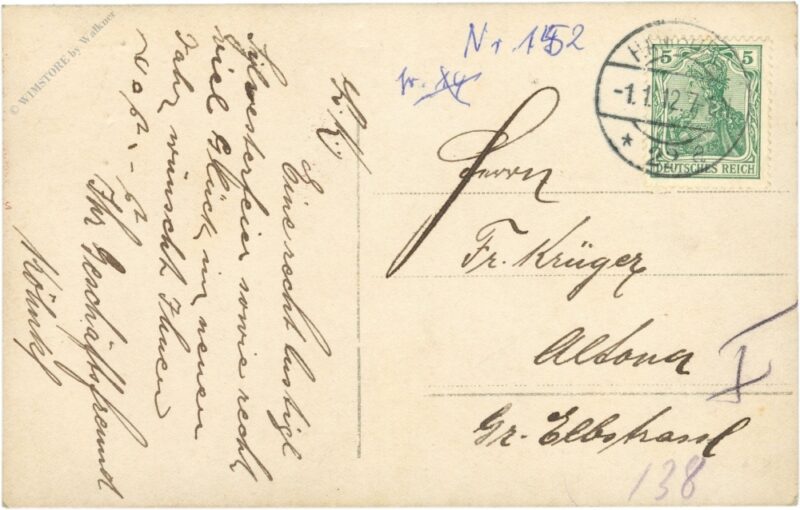 © WIMSTORE by Walkner
Nr 152
5 5
-1.1.12.7
* 2
DEUTSCHES REICH
Herrn
Fr. Krüger
Altona
Gr. Elbstrasse
138
Eine recht lustige
Silvesterfeier sowie recht
viel Glück im neuen
Jahr wünscht Ihnen
Ihr Geschäftsfreund